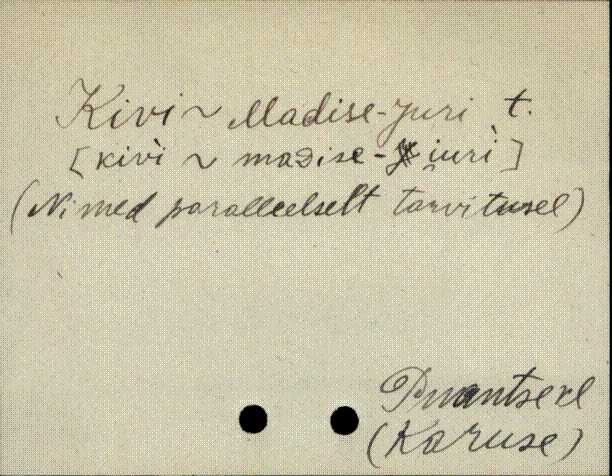 Kivi ~ Madise-Juri t.
[kivì ~ maᴅise-i̯urì]
(Nimed paralleelselt tarvitusel)
(Karuse)